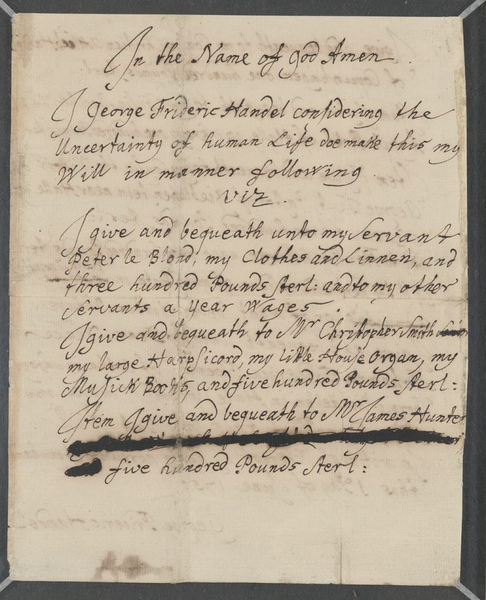 In the Name of god Amen.
I George Frideric Handel considering the
Uncertainty of human Life doe make this my
Will in manner following
viz.
I give and bequeath unto my Servant
Peter le Blond, my Clothes and Linnen, and
three hundred Pounds sterl: and to my other
servants a year Wages.
I give and bequeath to Mr Christopher Smith
my large Harpsicord, my little House Organ, my
Musick Books, and five hundred Pounds sterl:
Item I give and bequeath to Mr James Hunter
five hundred Pounds sterl: